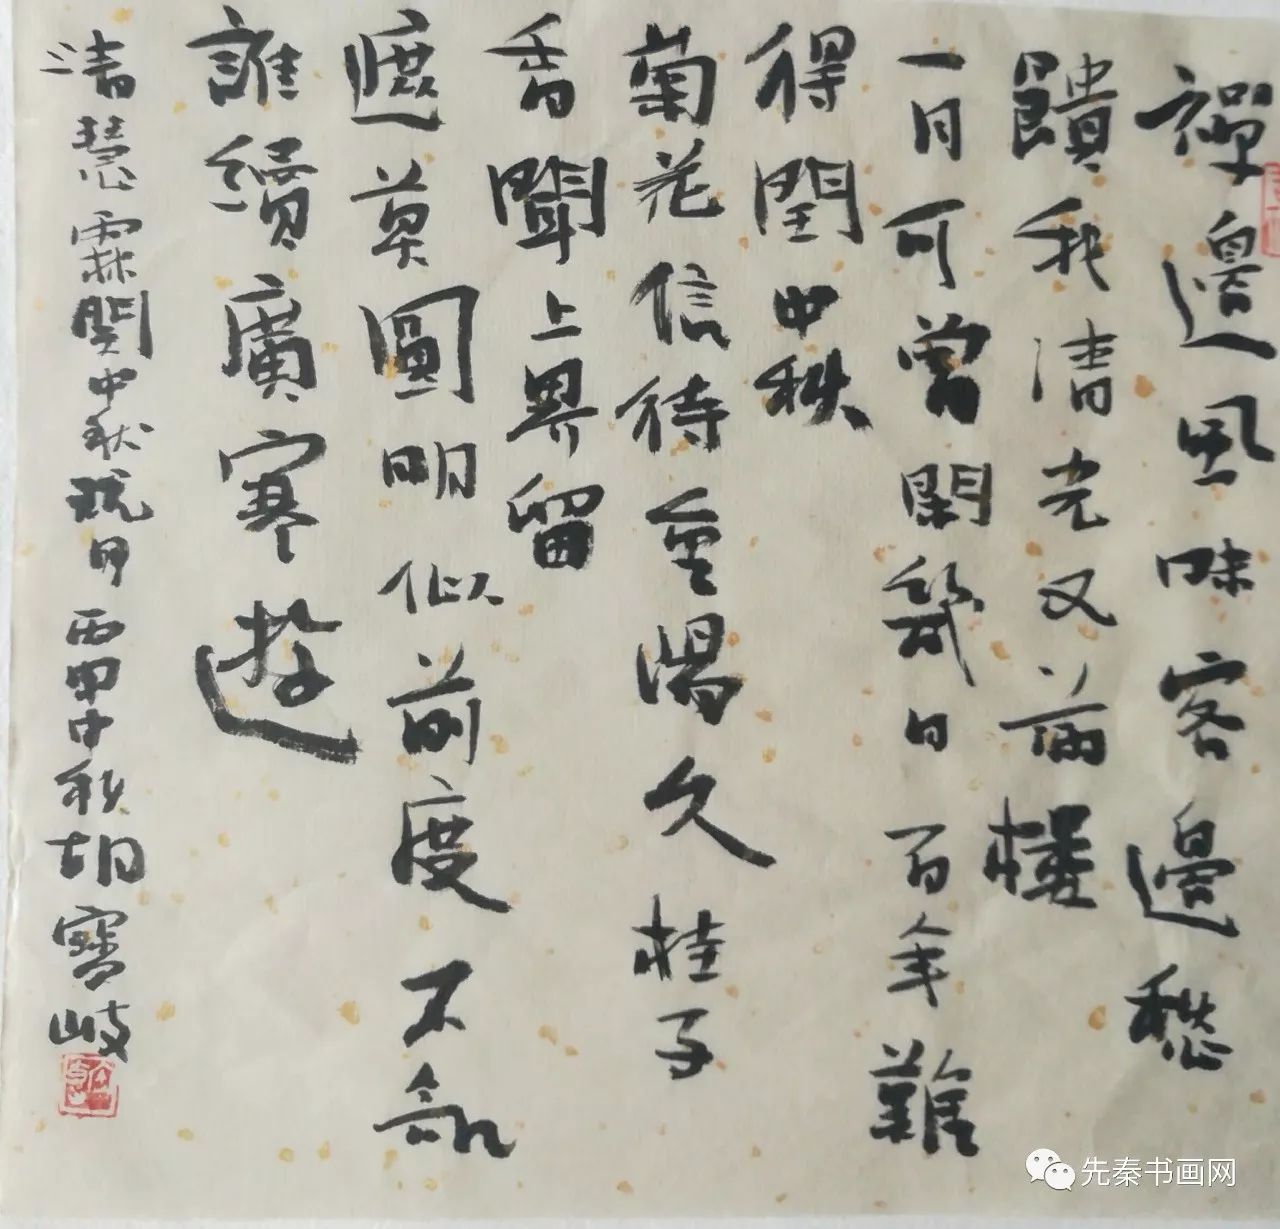 禪邊風味客邊愁
饋我清光又滿樓
一月可曾閑幾日百年難
得閏中秋
菊花信待重陽久桂子
香聞上界留
遮莫圓明似前度不知
誰續廣寒遊
清慧霖閏中秋玩月丙申中秋胡寶岐
先秦书画网